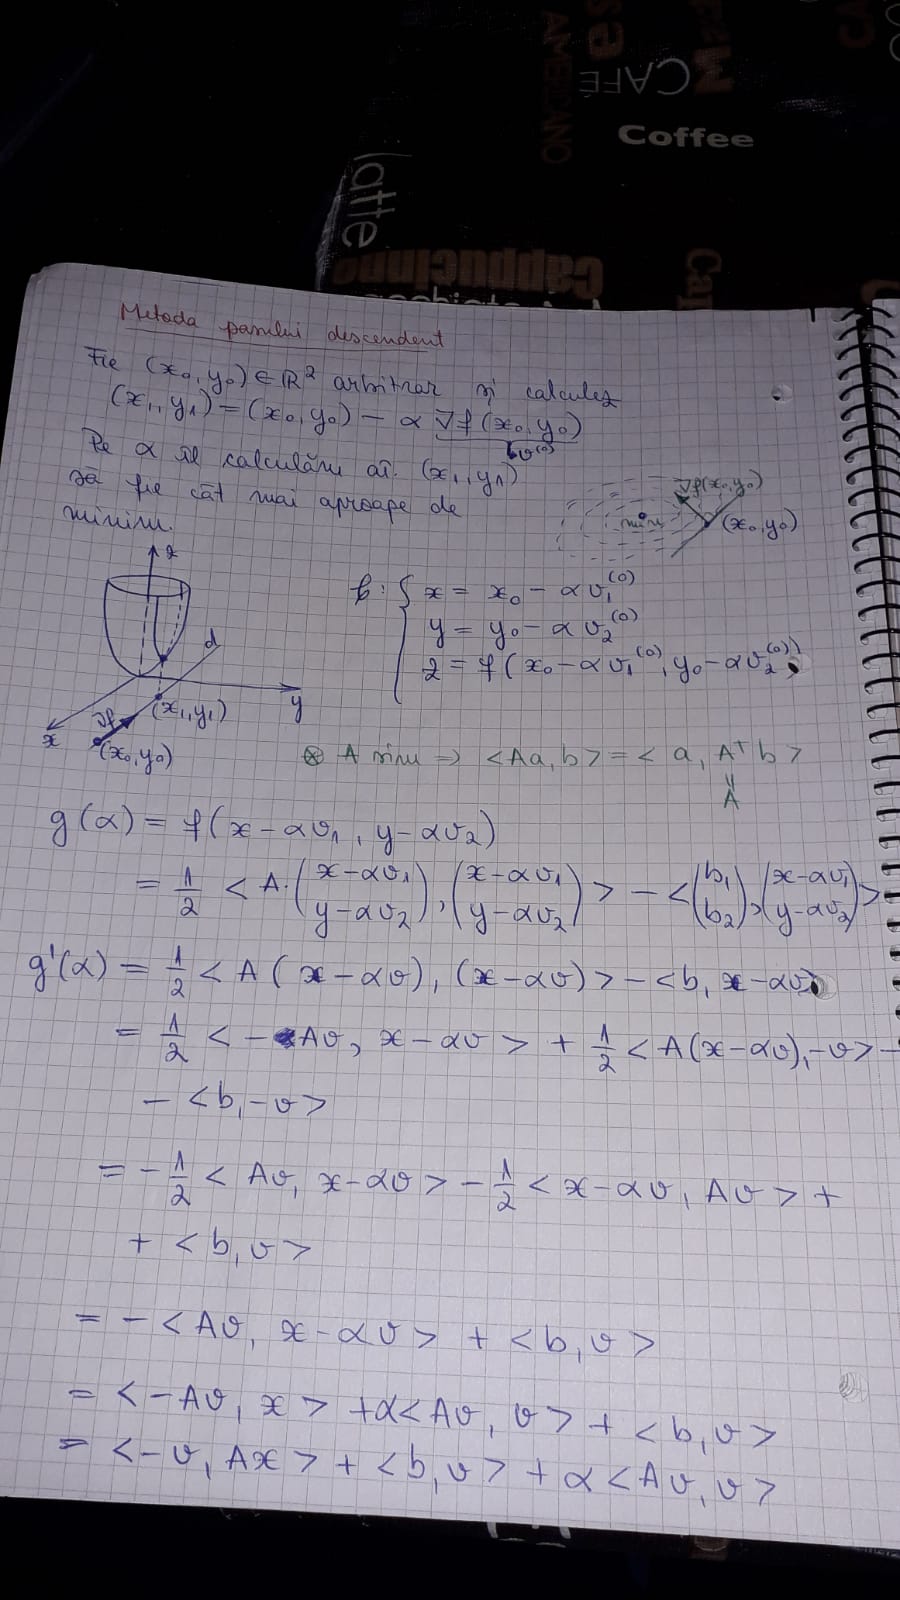 AMERICANO
CAFÉ
Coffee
latte
Cappuccino
Metoda pasului descendent
Fie (x₀, y₀) ∈ ℝ² arbitrar și calculez
(x₁, y₁) = (x₀, y₀) − α ∇f(x₀, y₀)
v⁽⁰⁾
Pe α îl calculăm aî. (x₁, y₁)
să fie cât mai aproape de
minim.
∇f(x₀, y₀)
minim
(x₀, y₀)
z
d
(x₁, y₁)
y
∇f
x
(x₀, y₀)
{ x = x₀ − αv₁⁽⁰⁾
y = y₀ − αv₂⁽⁰⁾
z = f(x₀ − αv₁⁽⁰⁾, y₀ − αv₂⁽⁰⁾)
⊛ A sim ⇒ <Aa, b> = <a, Aᵀb>
॥
A
g(α) = f(x − αv₁, y − αv₂)
= 1/2 <A·(x−αv₁ y−αv₂), (x−αv₁ y−αv₂)> − <(b₁ b₂), (x−αv₁ y−αv₂)>
g'(α) = 1/2 <A(x − αv), (x − αv)> − <b, x − αv>
= 1/2 <−Av, x − αv> + 1/2 <A(x − αv), −v> −
− <b, −v>
= −1/2 <Av, x − αv> − 1/2 <x − αv, Av> +
+ <b, v>
= − <Av, x − αv> + <b, v>
= <−Av, x> + α<Av, v> + <b, v>
= <−v, Ax> + <b, v> + α<Av, v>